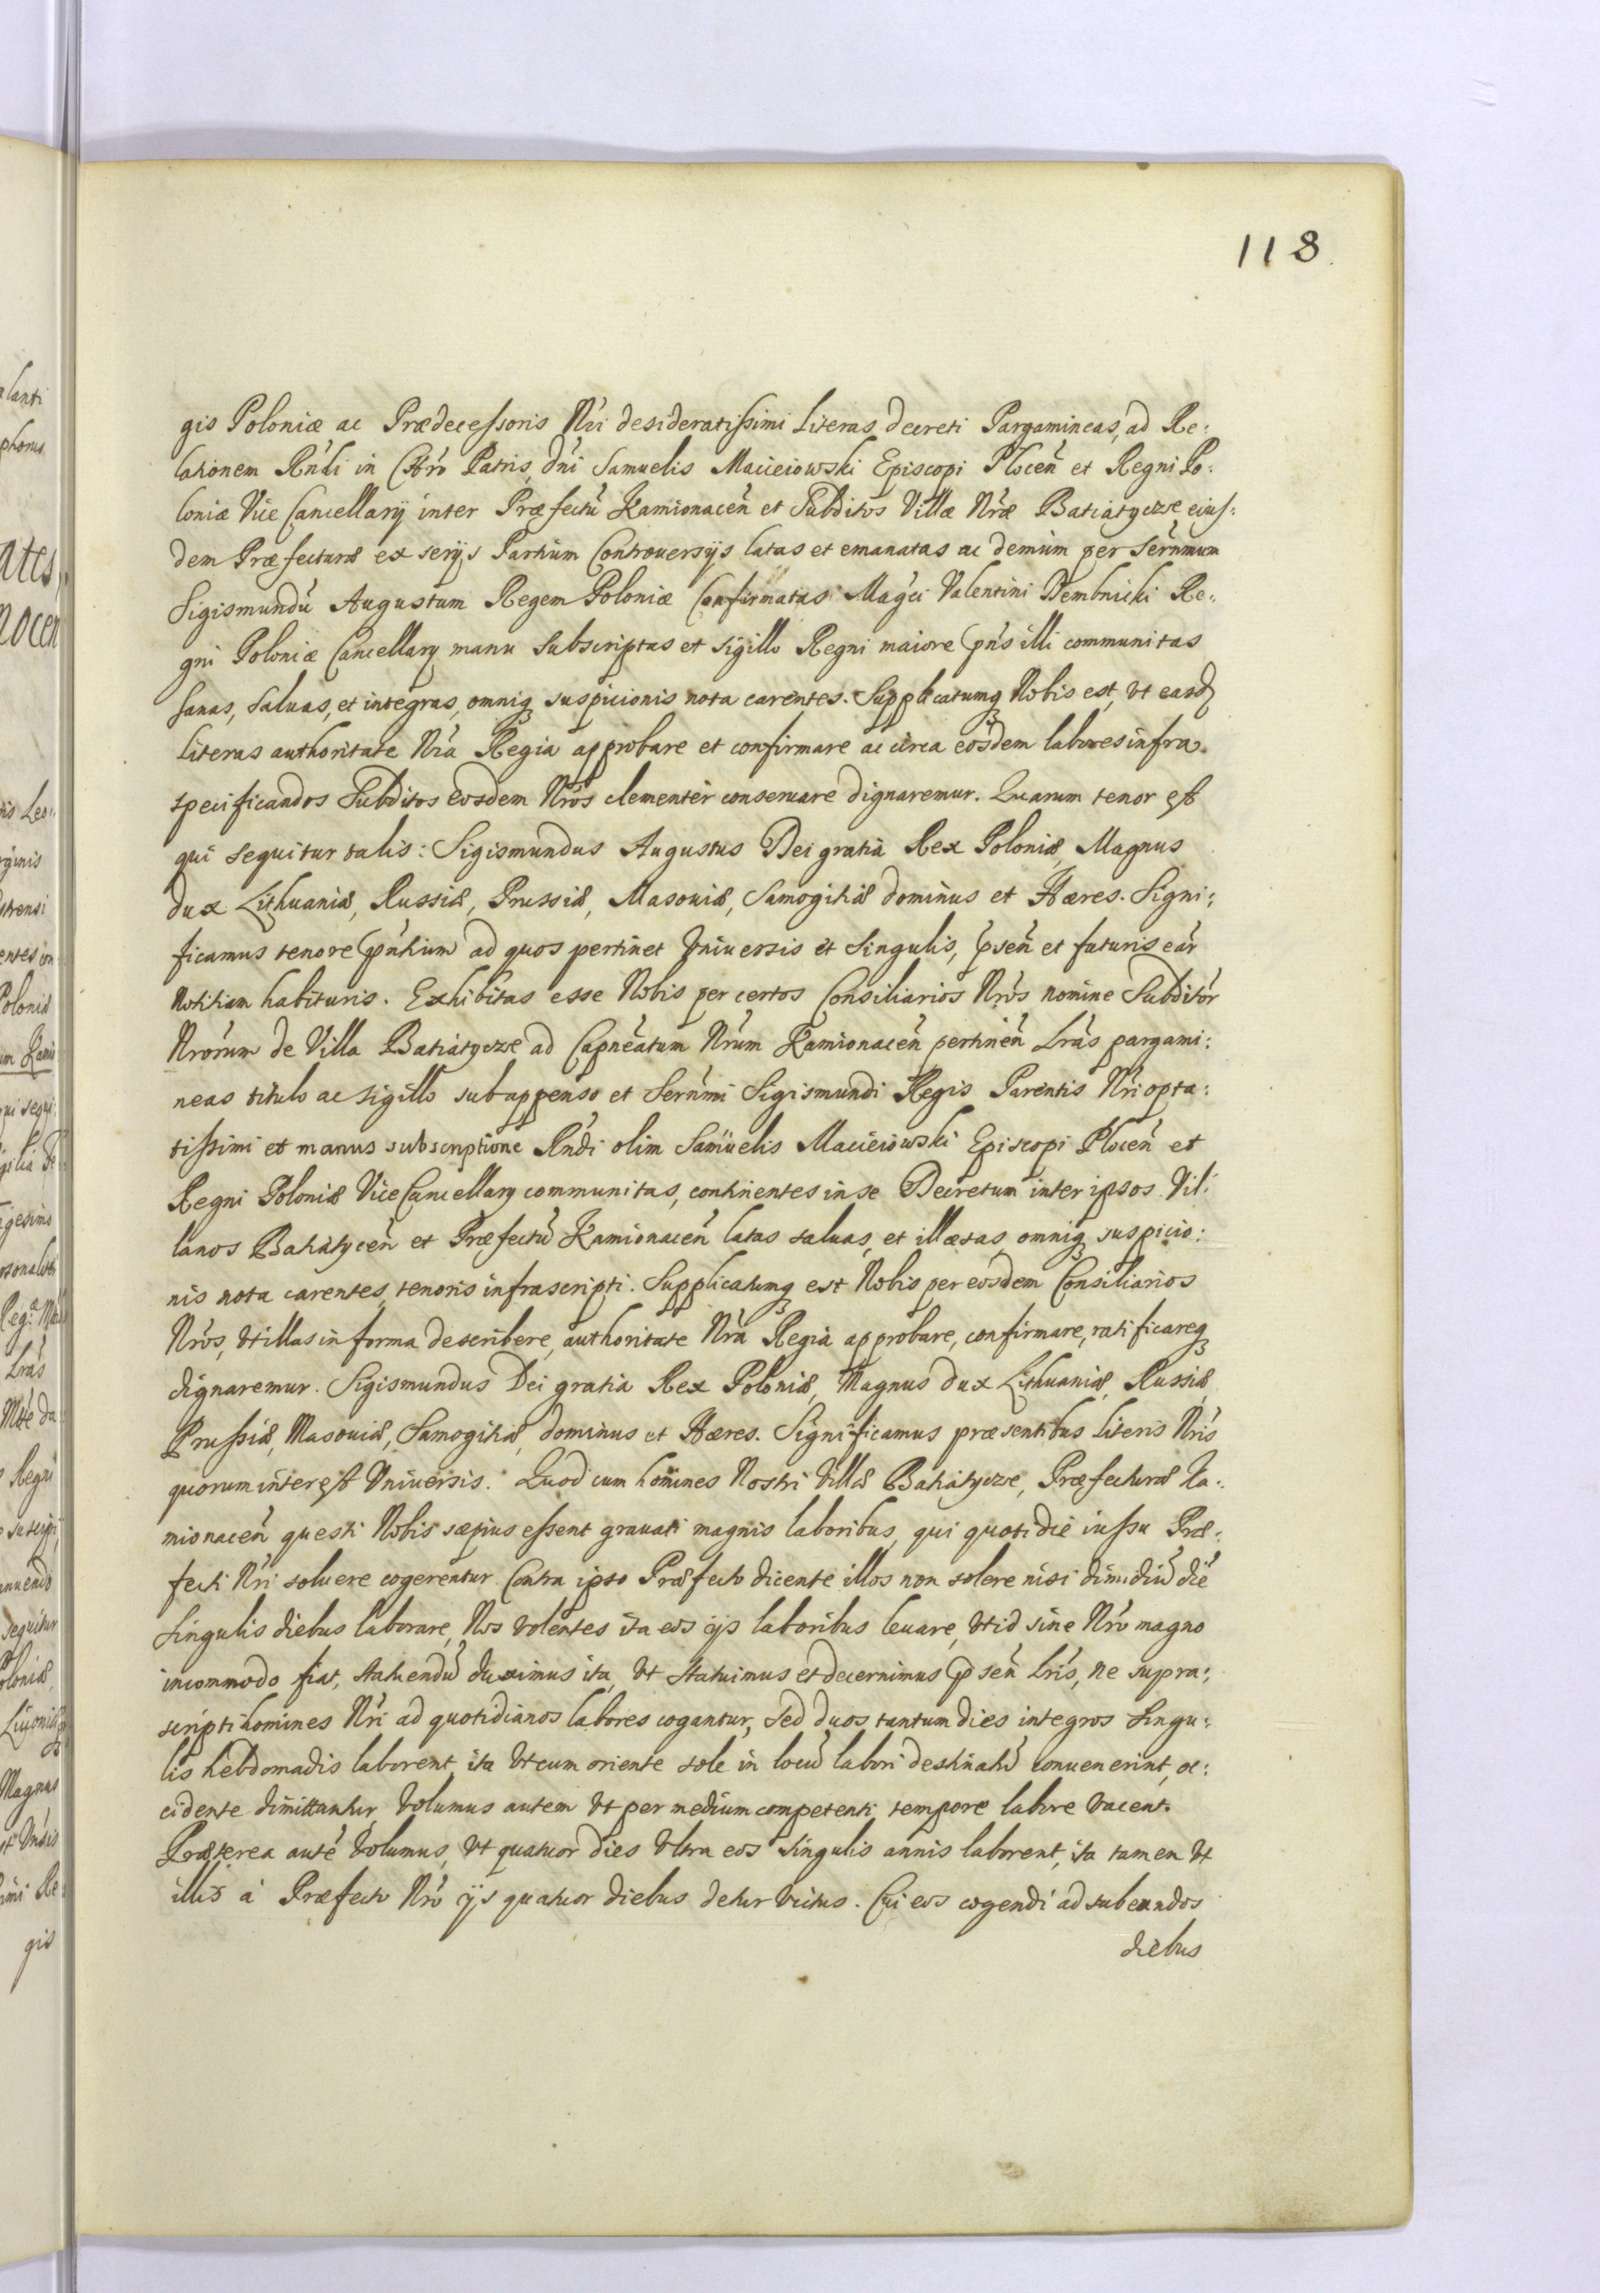 118
gis Poloniæ ac Prædecessoris Nri desideratissimi Literas decreti Pargamineas, ad Re:
lationem Rndi in Chro Patris, dni Samuelis Macieiowski Episcopi Plocen et Regni Po:
loniæ Vice Cancellarij inter Præfectu Kamionacen et Subditos Villæ Nræ Batiatycze eius:
dem Præfecturæ ex serijs Partium Controuersijs latas et emanatas ac demum per Sernmum
Sigismundu Augustum Regem Poloniæ Confirmatas Magci Valentini Dembnicki Re:
gni Poloniæ Cancellary manu subscriptas et sigillo Regni maiore pns illi communitas
sanas, saluas, et integras, omniq suspicionis nota carentes. Supplicatumq Nobis est, vt easd
literas authoritate Nra Regia approbare et confirmare ac circa eosdem labores infra
specificandos Subditos eosdem Nros clementer conseruare dignaremur. Quarum tenor est
qui sequitur talis: Sigismundus Augustus Dei gratia Rex Poloniæ, Magnus
dux Lithuaniæ, Russiæ, Prussiæ, Masouiæ, Samogitiæ dominus et Hæres. Signi:
ficamus tenore pntium ad quos pertinet Vniuersis et singulis, psen et futuris ear
notitiam habituris. Exhibitas esse Nobis per certos Consiliarios Nros nomine Subditor
Nrorum de Villa Batiatycze ad Capneatum Nrum Kamionacen pertinen Lras pargami:
neas titulo ac sigillo subappenso et Sernmi Sigismundi Regis Parentis Nri opta:
tissimi et manus subscriptione Rndi olim Samuelis Macieiowski Episcopi Plocen et
Regni Poloniæ Vice Cancellary communitas, continentes in se Decretum inter ipsos Vil:
lanos Batiatycen et Præfectu Kamionacen latas saluas, et illæsas, omniq suspicio:
nis nota carentes, tenoris infrascripti. Supplicatumq est Nobis per eosdem Consiliarios
Nros, vt illas in forma describere, authoritate Nra Regia approbare, confirmare, ratificareq
dignaremur. Sigismundus Dei gratia Rex Poloniæ, Magnus dux Lithuaniæ, Russiæ
Prussiæ, Masouiæ, Samogitiæ, dominus et Hæres. Significamus præsentibus literis Nris
quorum interest Vniuersis. Quod cum homines Nostri Villæ Batiatycze, Præfecturæ Ka:
mionacen questi Nobis sæpius essent grauati magnis laboribus, qui quotidie iussu Præ:
fecti Nri soluere cogerentur. Contra ipso Præfecto dicente illos non solere nisi dimidiu die
singulis diebus laborare, Nos volentes ita eos ijs laboribus leuare, vt id sine Nro magno
incommodo fiat, statuendu duximus ita, vt statuimus et decernimus psen Lris, ne supra:
scripti homines Nri ad quotidianos labores cogantur, sed duos tantum dies integros singu:
lis hebdomadis laborent, ita vt cum oriente sole in locu labori destinatu conuenerint, oc:
cidente dimittantur, volumus autem vt per medium competenti tempore labore vacent.
Præterea aute volumus, vt quatuor dies vltra eos singulis annis laborent, ita tamen vt
illis à Præfecto Nro ijs quatuor diebus detur victus. Cui eos cogendi ad subeundos
diebus